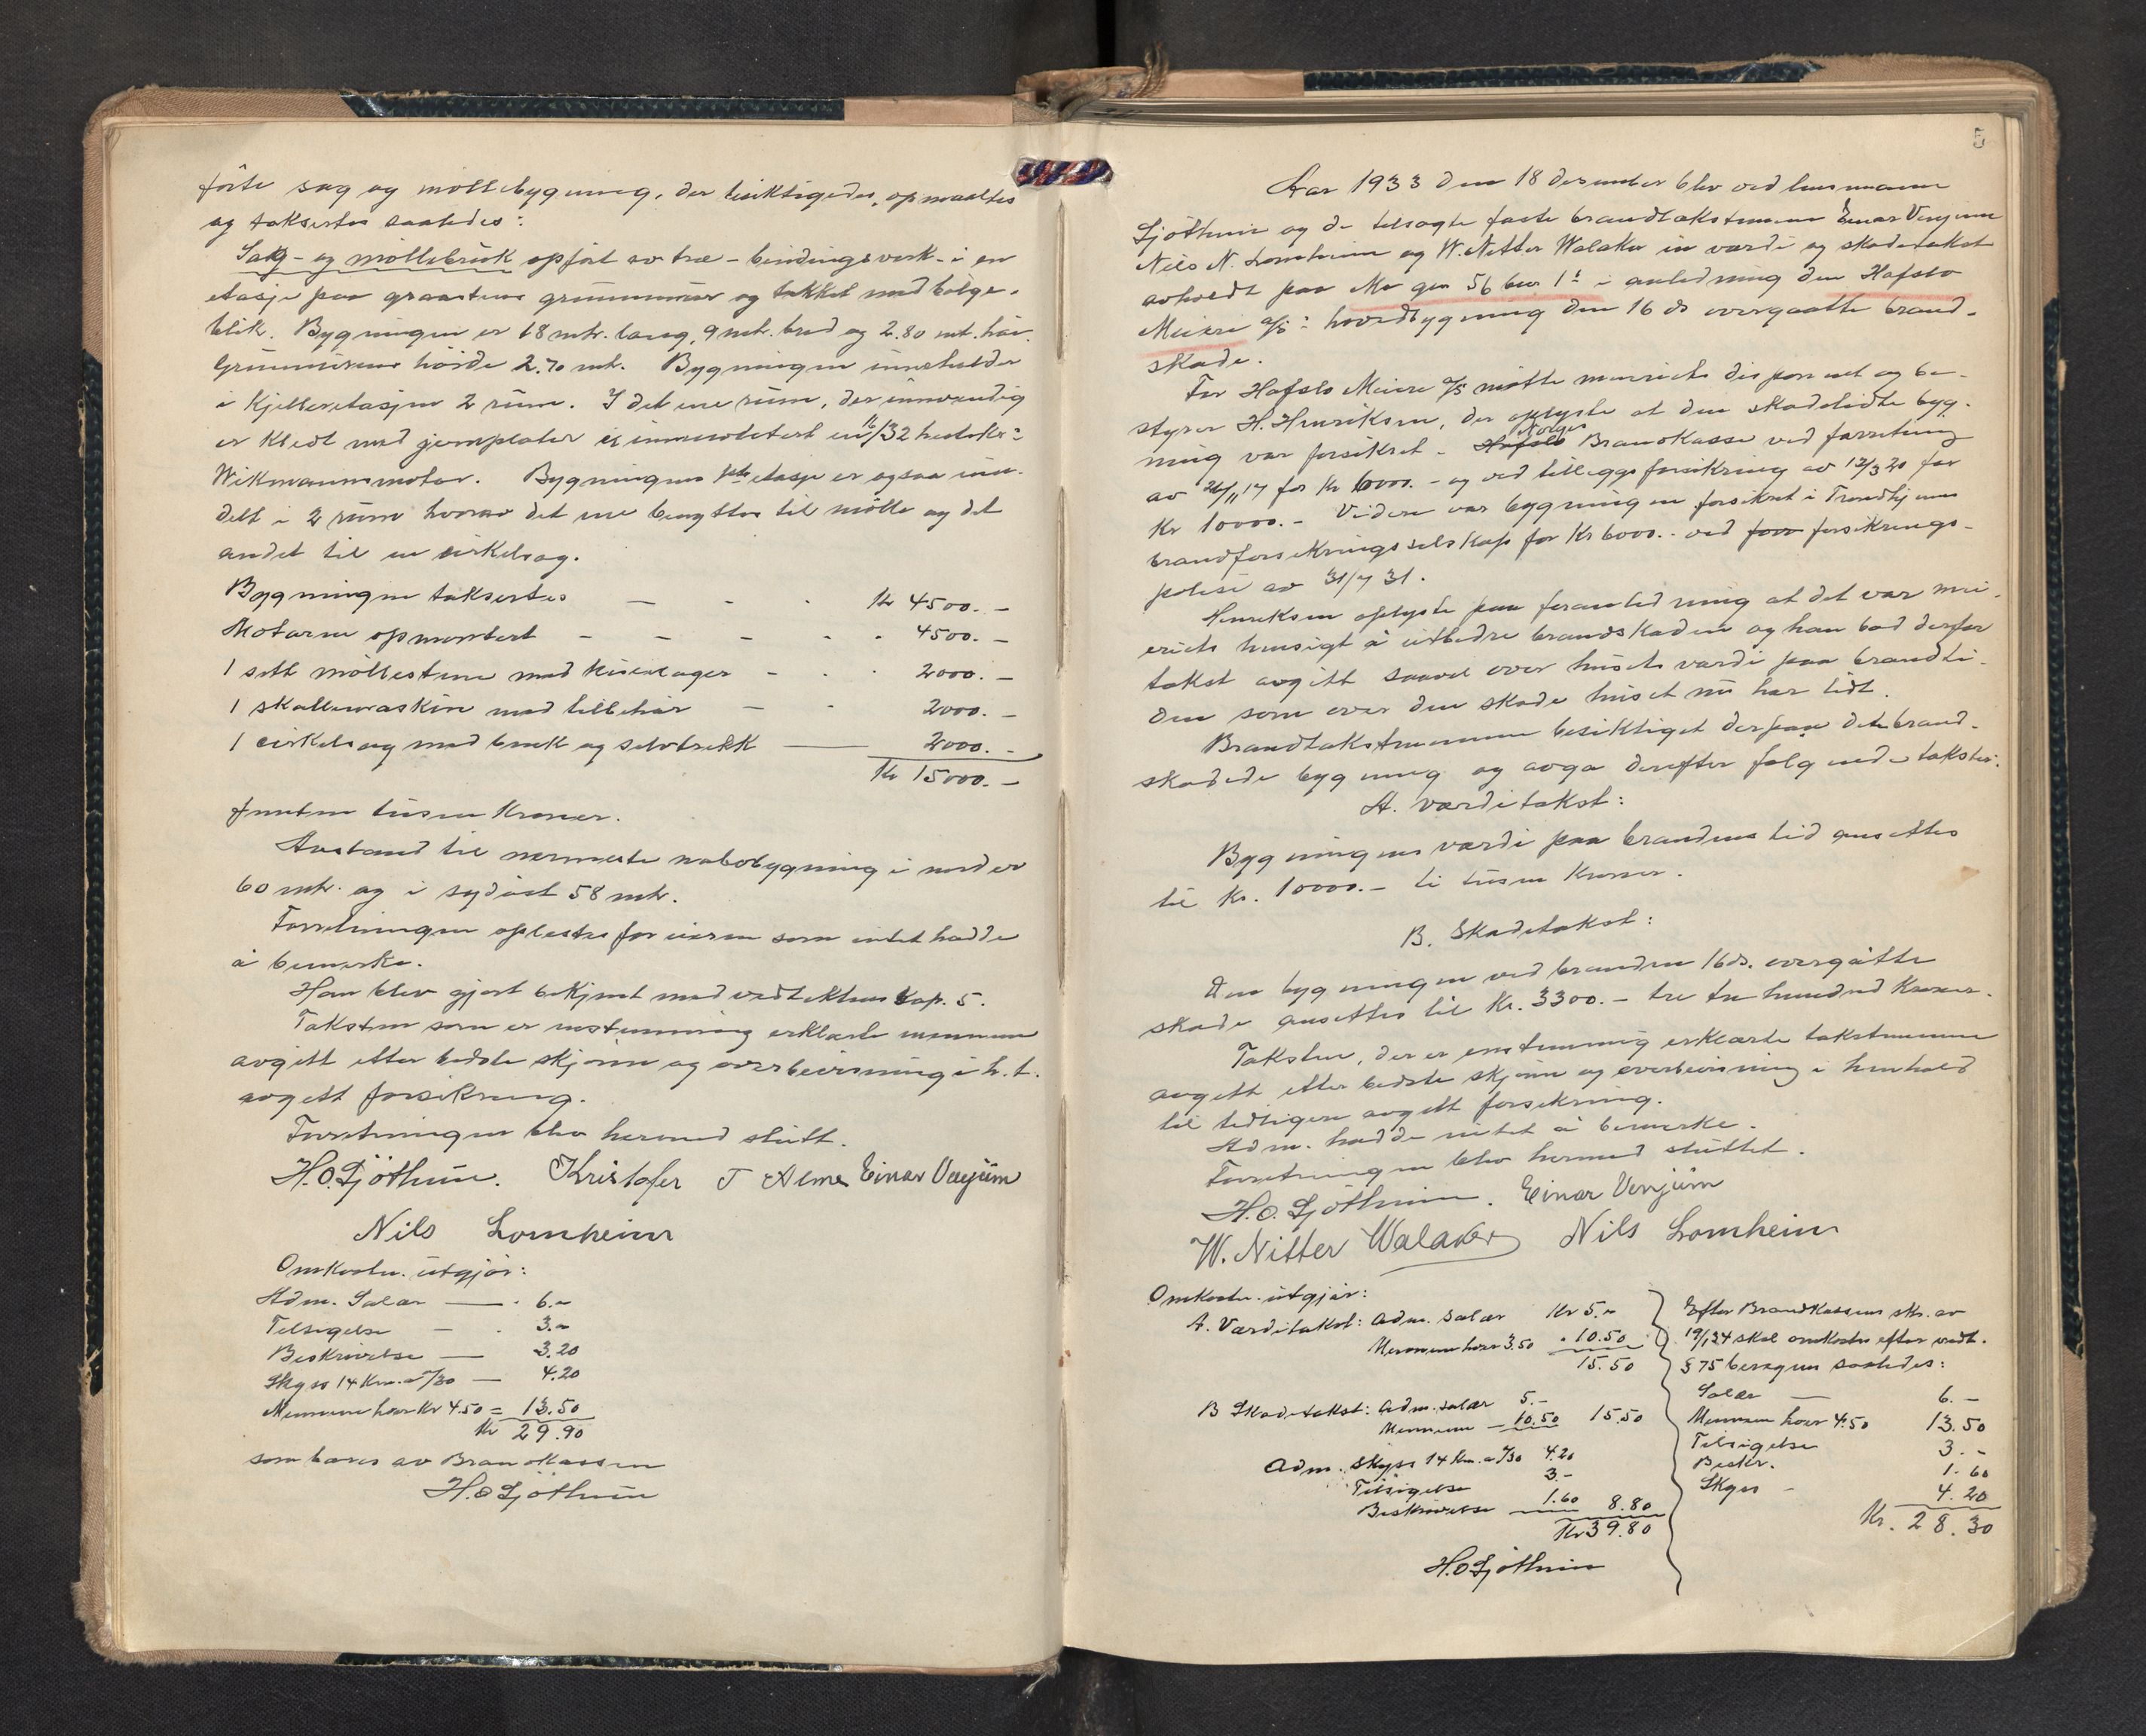 førte sag og møllebygning, der besiktigedes, opmaaltes
og taksertes saaledes:
Sag- og møllebruk opført av træ-bindingsverk - i en
etasje paa graastens grunnmur og tekket med bølge-
blik. Bygningen er 18 mtr. lang, 9 mtr. bred og 2.80 mt. høi.
Grunmurens høide 2.70 mt. Bygningen inneholder
i Kjelleretasjen 2 rum. I det ene rum, der innvendig
er Kledt med jernplater er innmontert en 16/32 hestekr:
Wikmannsmotor. Bygningens 1ste etasje er ogsaa inn-
delt i 2 rum hvorav det ene benyttes til mølle og det
andet til en sirkelsag.
Bygningen taksertes — - - Kr 4500.-
Motoren opmontert - - - - - 4500.-
1 sett møllestene med Kuselager - - - 2000.-
1 skallemaskin med tilbehør — - 2000.-
1 cirkelsag med benk og selvtrekk — 2000.-
Kr 15000.-
femten tusen Kroner.
Avstand til nermeste nabobygning i nord er
60 mtr. og i sydøst 58 mtr.
Forretningen oplestes for eieren som intet hadde
å bemerke.
Han blev gjort bekjent med vedtektenes Kap. 5.
Taksten som er enstemmig erklærte mennene
avgitt etter bedste skjønn og overbevisning i h. t.
avgitt forsikring.
Forretningen blev hermed slutt.
H.O. Sjøthun. Kristofer T Alme Einar Venjum
Nils Lomheim
Omkostn. utgjør:
Adm. Salær — - 6.-
Tilsigelse — - 3.-
Beskrivelse — 3.20
Skyss 14 Km. a -/30 — 4.20
Mennene hver Kr 4.50 = 13.50
Kr 29.90
som bæres av Brandkassen
H.O Sjøthun
5
Aar 1933 den 18 desember blev ved lensmann
Sjøthun og de tilsagte faste brandtakstmenn Einar Venjum
Nils N. Lomheim og W. Nitter Walaker en værdi og skadetakst
avholdt paa Mo gnr 56 bnr 1 i anledning den Hafslo
Meieri A/S: hovedbygning den 16 ds overgaatte brand-
skade.
For Hafslo Meieri A/S møtte meieriets disponent og be-
styrer H. Henriksen, der oplyste at den skadelidte byg-
ning var forsikret - Hafslo Norges Brandkasse ved forretning
av 26/11 17 for Kr 6000.- og ved tilleggsforsikring av 12/3 20 for
Kr 10000.- Videre var bygningen forsikret i Trondhjems
brandforsikringsselskap for Kr 6000.- ved forr forsikrings-
polise av 31/7 31.
Henriksen oplyste paa foranledning at det var mei-
eriets hensigt å utbedre brandskaden og han bad derfor
takst avgitt saavel over husets værdi paa brandti-
den som over den skade huset nu har lidt.
Brandtakstmennene besiktiget derpaa den brand-
skadede bygning og avga derefter følgende takster:
A. værditakst:
Bygningens værdi paa brandens tid ansettes
til Kr. 10000.- ti tusen Kroner.
B. Skadetakst:
Den bygningen ved branden 16 ds. overgåtte
skade ansettes til Kr. 3300.- tre tre hundred Kroner.
Taksten, der er enstemmig erklærte takstmennene
avgitt etter bedste skjønn og overbevisning i henhold
til tidligere avgitt forsikring.
Adm. hadde intet å bemerke.
Forretningen blev hermed sluttet.
H.O. Sjøthun. Einar Venjum
W. Nitter Walaker Nils Lomheim
Omkostn. utgjør:
A. Værditakst: Adm. salær Kr 5.-
Mennene hver 3.50 - 10.50
15.50
B Skadetakst: Adm. salær 5.-
Mennene — 10.50 15.50
Adm. skyss 14 Km. a -/30 4.20
Tilsigelse 3.-
Beskrivelse 1.60 8.80
Kr 39.80
H.O Sjøthun
Efter Brandkassens skr. av
19/1 34 skal omkostn efter vedt.
§ 75 beregnes saaledes:
Salær — 6.-
Mennene hver 4.50 13.50
Tilsigelse 3.-
Beskr. 1.60
Skyss - 4.20
Kr. 28.30